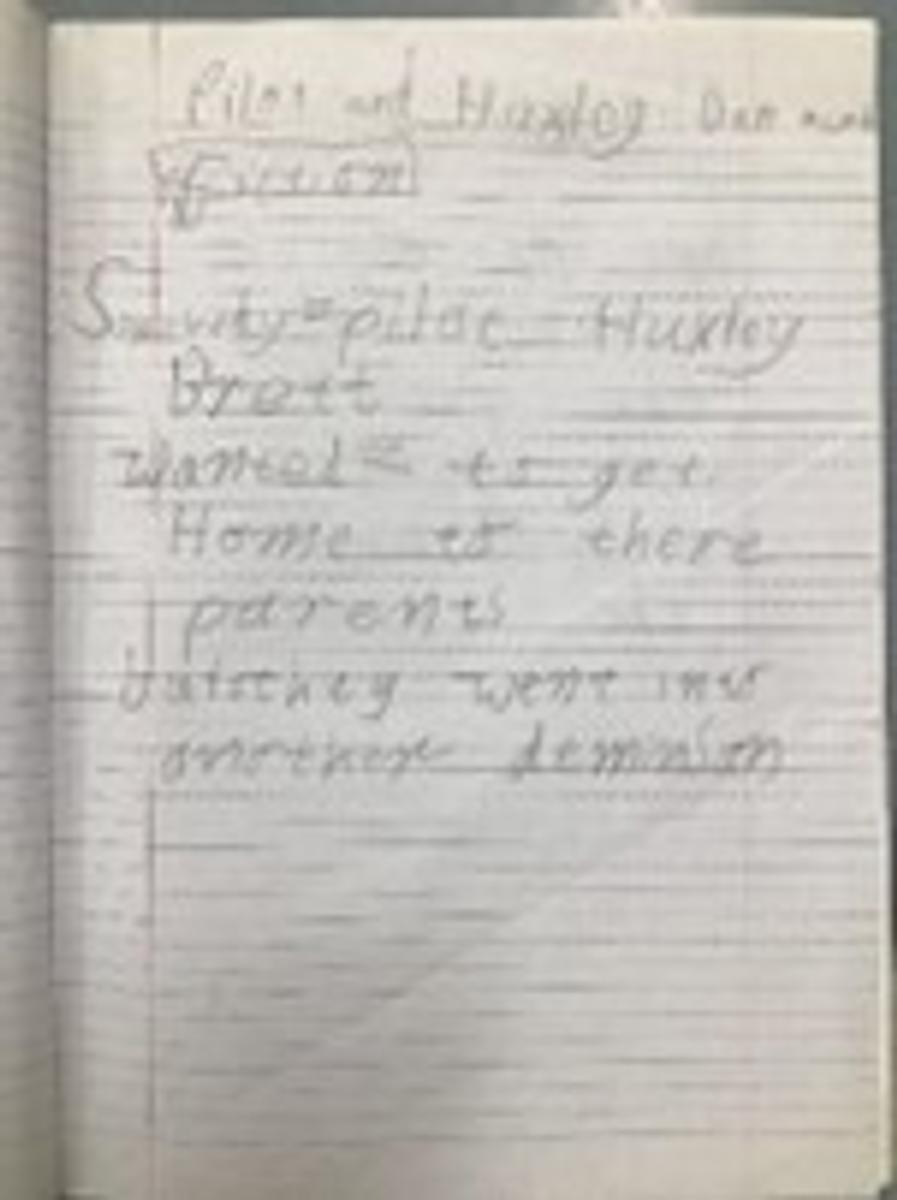 Pilot and Huxley Dan
fiction
pilot Huxley
Brett
wanted = to get
Home to there
parents
but they went into
another deminson